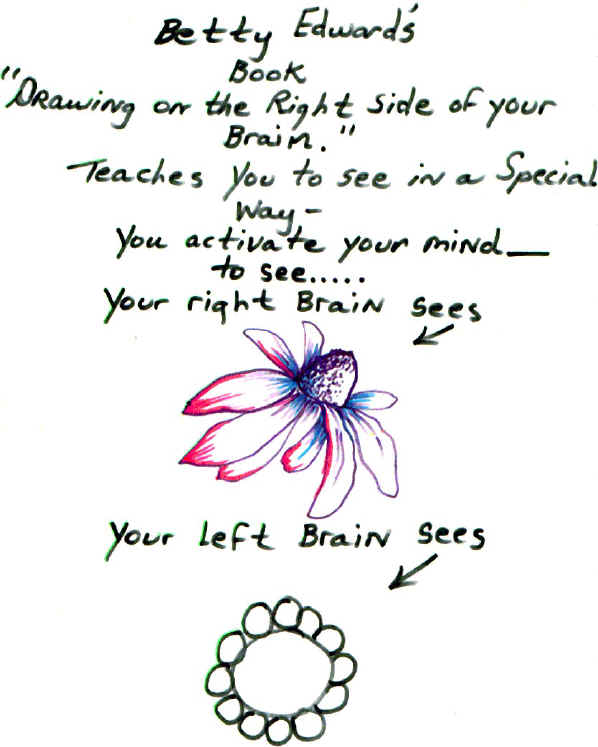 Betty Edward's
Book
"Drawing on the Right side of your
Brain."
Teaches you to see in a Special
Way-
You activate your mind_
to see.....
Your right Brain sees
Your left Brain sees